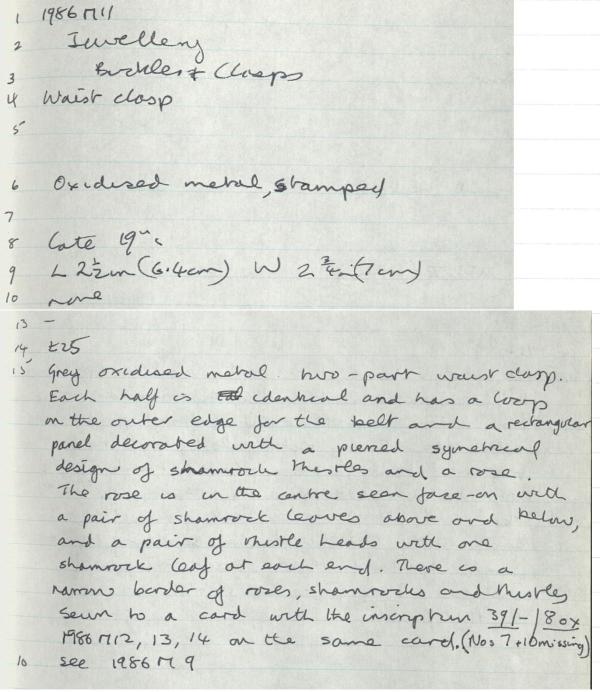 1 1986 M11
2 Jewellery
3 Buckles & Clasps
4 Waist clasp
5
6 Oxidised metal, stamped
7
8 Late 19th c
9 L 2½in (6.4cm) W 2¾in (7cm)
10 none
13 –
14 £25
15 Grey oxidised metal two-part waist clasp.
Each half is identical and has a loop
on the outer edge for the belt and a rectangular
panel decorated with a pierced symetrical
design of shamrock thistles and a rose.
The rose is in the centre seen face-on with
a pair of shamrock leaves above and below,
and a pair of thistle heads with one
shamrock leaf at each end. There is a
narrow border of roses, shamrocks and thistles
Sewn to a card with the inscription 39/-/80x
1986 M12, 13, 14 on the same card. (Nos 7+10 missing)
10 see 1986 M 9